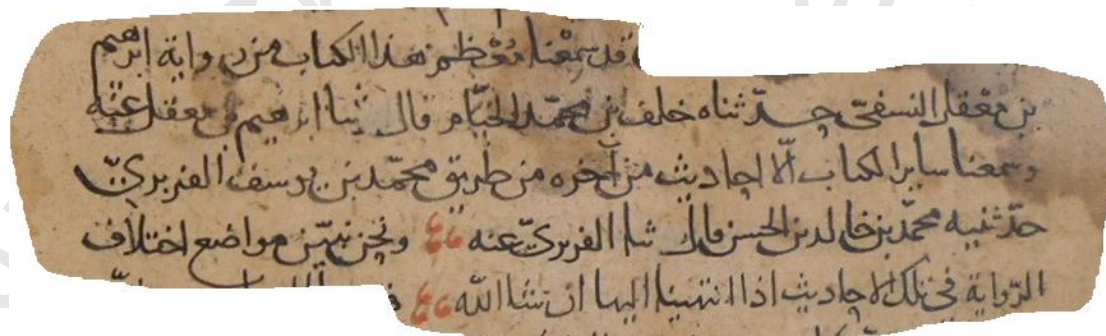 قد سمعنا معظم هذا الكتاب من رواية ابرهيم
بن معقل النسفي حدثناه خلف بن محمد الخيام قال ثنا ابرهيم بن معقل عنه
وسمعنا ساير الكتاب الّا احاديث من آخره من طريق محمّد بن يوسف الفربريّ
حدّثنيه محمّد بن خالد بن الحسن قال ثنا الفربريّ عنه ونحن نبيّن مواضع اختلاف
الرّواية في تلك الاحاديث اذا انتهينا اليها ان شا الله